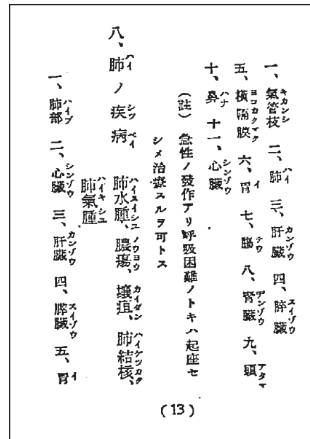 一、氣管枝 二、肺 三、肝臟 四、膵臟
五、橫隔膜 六、胃 七、腸 八、腎臟 九、頭
十、鼻 十一、心臟
(註) 急性ノ發作アリ呼吸困難ノトキハ起座セ
シメ治療スルヲ可トス
八、肺ノ疾病 肺水腫、膿瘍、壞疽、肺結核、
肺氣腫
一、肺部 二、心臟 三、肝臟 四、膵臟 五、胃
(13)